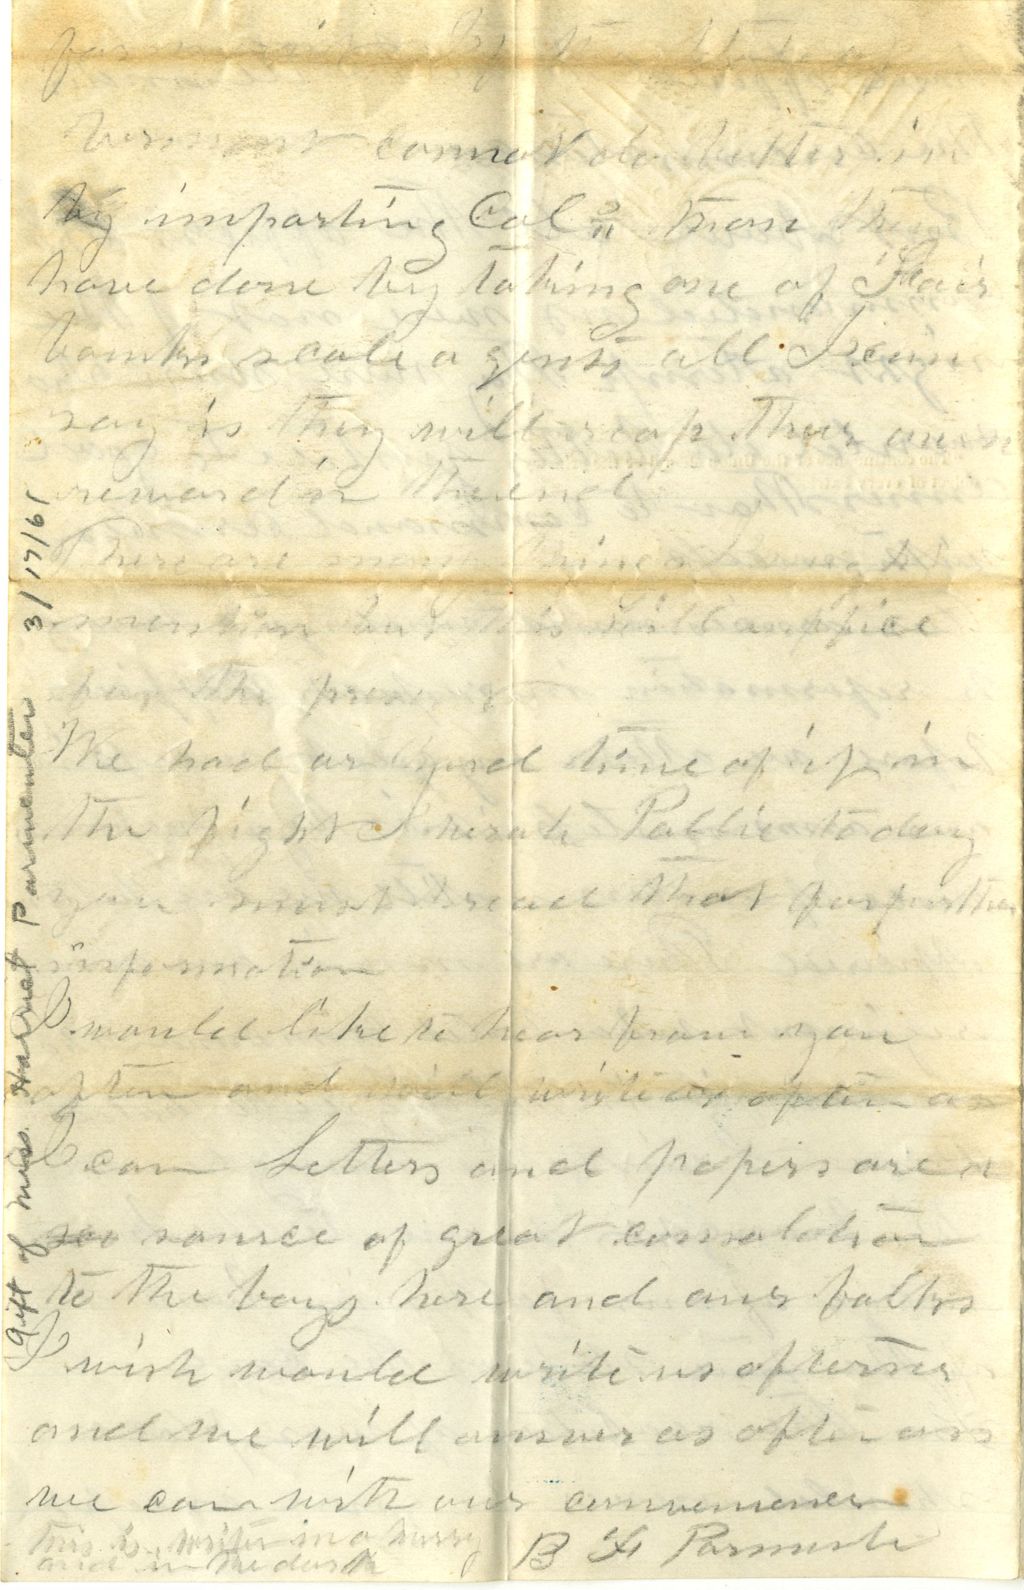 Vermont cannot do better in
by imparting Col than they
have done by taking one of Fair
banks scale agents all I can
say is they will reap their own
reward in the end
There are many things
mention but this will suffice
for the present
We had a hard time of it in
the fight I wrote Pallie to day
you must read that for further
information
I would like to hear from you
often and will write as often as
I can Letters and papers are a
source of great consolation
to the boys here and our folks
I wish would write us oftener
and we will answer as often as
we can with our conveniences
B F Parmenter
this is writen in a hurry
and in the dark
Gift of Miss. Harriet Parmenter 3/17/61